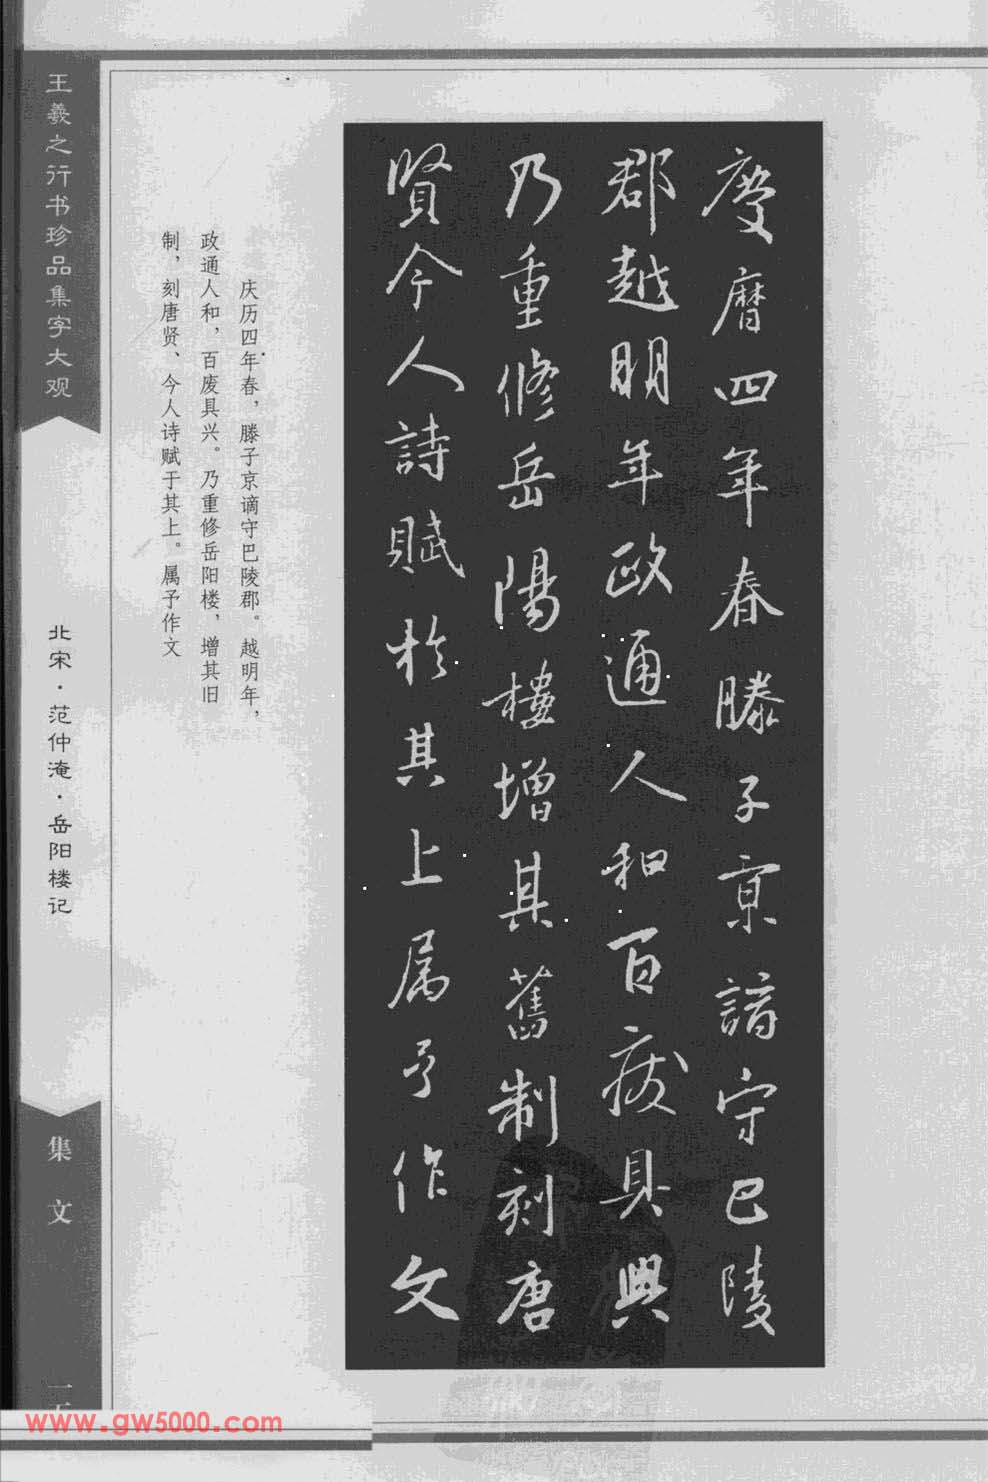 慶曆四年春滕子京謫守巴陵
郡越明年政通人和百廢具興
乃重修岳陽樓增其舊制刻唐
賢今人詩賦於其上属予作文
庆历四年春，滕子京谪守巴陵郡。越明年，
政通人和，百废具兴。乃重修岳阳楼，增其旧
制，刻唐贤、今人诗赋于其上。属予作文
王羲之行书珍品集字大观
北宋·范仲淹·岳阳楼记
集文
www.gw5000.com